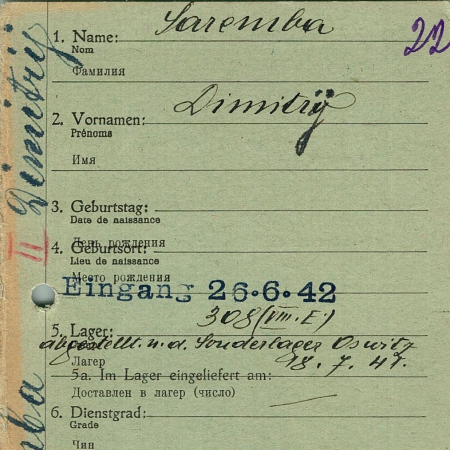 1. Name: Saremba
Nom
22
Фамилия
2. Vornamen: Dimitrij
Prénoms
Имя
3. Geburtstag:
Date de naissance
День рождения
4. Geburtsort:
Lieu de naissance
Место рождения
Eingang 26.6.42
308 (VIII. E)
5. Lager:
abgestellt. n. d. Sonderlager Oswitz
Лагер
18. 7. 41.
5a. Im Lager eingeliefert am:
Доставлен в лагер (число)
6. Dienstgrad:
Grade
Чин
Dimitrij
II